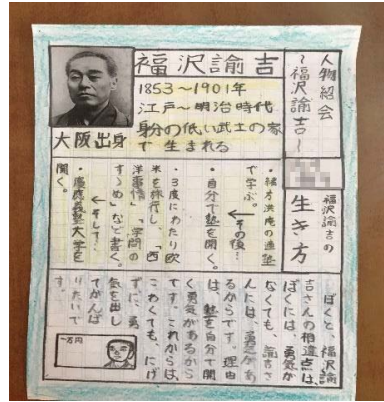 人物紹会
~福沢諭吉~
福沢諭吉
1853~1901年
江戸~明治時代
身分の低い武士の家
で生まれる
大阪出身
福沢諭吉の
生き方
・緒方洪庵の適塾
で学ぶ。
←その後…
・自分で塾を開く。
・3度にわたり欧
米を旅行し、「西
洋事情」、「学問の
すゝめ」など書く。
←そして…
・慶應義塾大学を
開く。
ぼくと、福沢諭
吉さんの相違点は、
ぼくには、勇気が
なくても、諭吉さ
んには、勇気があ
るからです。理由
は、塾を自分で開
く勇気があるから
です。これからは、
こわくても、にげ
ずに、勇
気を出し
てがんば
りたいで
す。
一万円